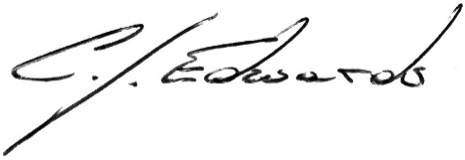 C. J. Edwards